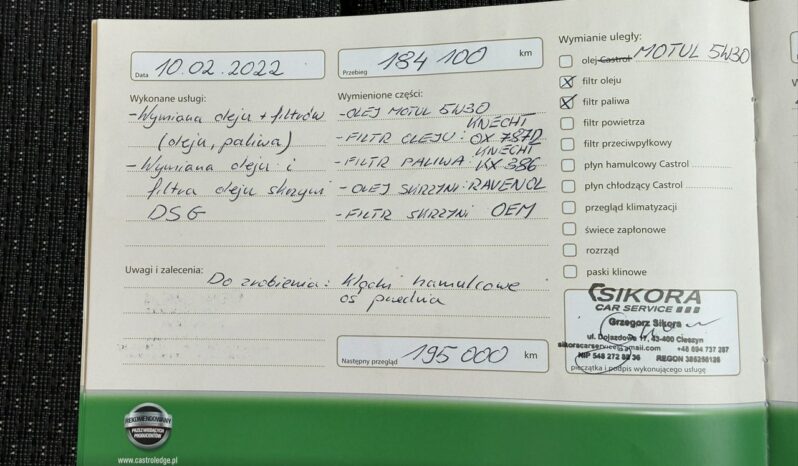 Data 10.02.2022
Przebieg 184 100 km
Wykonane usługi:
-Wymiana oleju + filtrów
(oleju, paliwa)
-Wymiana oleju i
filtra oleju skrzyni
DSG
Wymienione części:
-OLEJ MOTUL 5W30
KNECHT
-FILTR OLEJU: OX 787D
KNECHT
-FILTR PALIWA: KX 386
-OLEJ SKRZYNI: RAVENOL
-FILTR SKRZYNI OEM
Wymianie uległy:
olej Castrol MOTUL 5W30
filtr oleju
filtr paliwa
filtr powietrza
filtr przeciwpyłkowy
płyn hamulcowy Castrol
płyn chłodzący Castrol
przegląd klimatyzacji
świece zapłonowe
rozrząd
paski klinowe
Uwagi i zalecenia:
Do zrobienia: klocki hamulcowe
oś przednia
Następny przegląd 195 000 km
SIKORA
CAR SERVICE
Grzegorz Sikora
ul. Dojazdowa 17, 43-400 Cieszyn
sikoracarservice@gmail.com +48 694 737 287
NIP 548 272 88 36 REGON 385250125
pieczątka i podpis wykonującego usługę
REKOMENDOWANY
PRZEZ WIODĄCYCH
PRODUCENTÓW
www.castroledge.pl